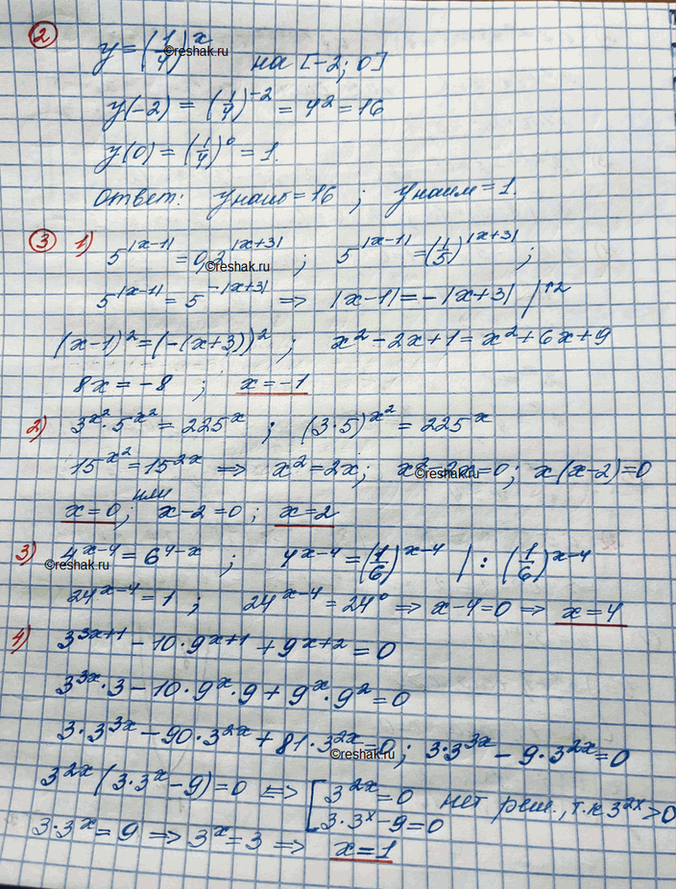 ② y = (1/4)^x на [-2; 0]
y(-2) = (1/4)^-2 = 4² = 16
y(0) = (1/4)^0 = 1.
Ответ: yнаиб = 16 ; yнаим = 1.
③ 1) 5^|x-1| = 0,2^|x+3| ; 5^|x-1| = (1/5)^|x+3| ;
5^|x-1| = 5^-|x+3| ⇒ |x-1| = -|x+3| |↑2
(x-1)² = (-(x+3))² ; x² - 2x + 1 = x² + 6x + 9
8x = -8 ; x = -1
2) 3^x² · 5^x² = 225^x ; (3·5)^x² = 225^x
15^x² = 15^2x ⇒ x² = 2x; x² - 2x = 0; x(x-2) = 0
x = 0; или x - 2 = 0 ; x = 2
3) 4^x-4 = 6^4-x ; 4^x-4 = (1/6)^x-4 | : (1/6)^x-4
24^x-4 = 1 ; 24^x-4 = 24^0 ⇒ x-4 = 0 ⇒ x = 4
4) 3^3x+1 - 10·9^x+1 + 9^x+2 = 0
3^3x · 3 - 10·9^x · 9 + 9^x · 9² = 0
3·3^3x - 90·3^2x + 81·3^2x = 0 ; 3·3^3x - 9·3^2x = 0
3^2x (3·3^x - 9) = 0 ⇔ [ 3^2x = 0 нет реш., т.к 3^2x > 0
3·3^x - 9 = 0
3·3^x = 9 ⇒ 3^x = 3 ⇒ x = 1
©reshak.ru
©reshak.ru
©reshak.ru
©reshak.ru
©reshak.ru